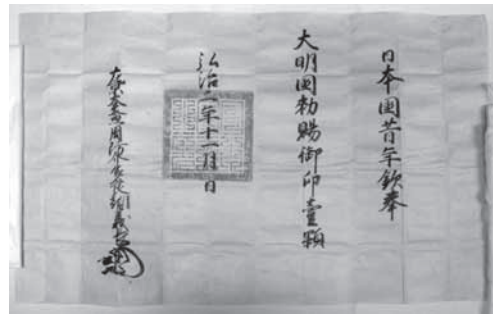 日本國昔年欽奉
大明國勅賜御印壹顆
弘治二年十一月 日